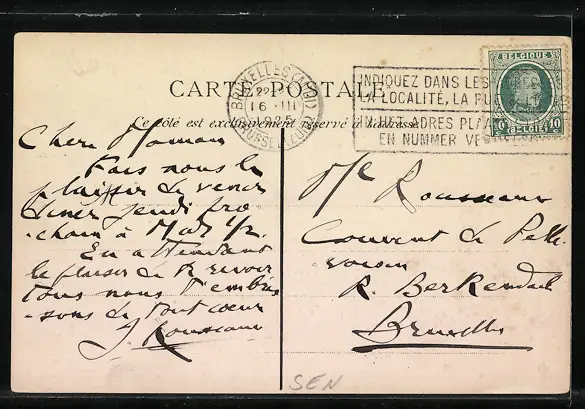 CARTE POSTALE
Ce côté est exclusivement réservé à l'adresse
BRUXELLES (MIDI)
16 III
1925
BRUSSEL (ZUID)
INDIQUEZ DANS LES
LA LOCALITÉ, LA RUE & LE
IN HET ADRES PLAATS
EN NUMMER VE
BELGIQUE
10 BELGIË 10
Chere Maman
Fais nous le
plaisir de venir
diner jeudi pro
-chain à Midi 1/2.
En attendant
le plaisir de te revoir
tous nous t'embras
-sons de tout coeur
J. Rousseau
Rousseau
Couvent de
R. Berkendael
Bruxelles
SEN